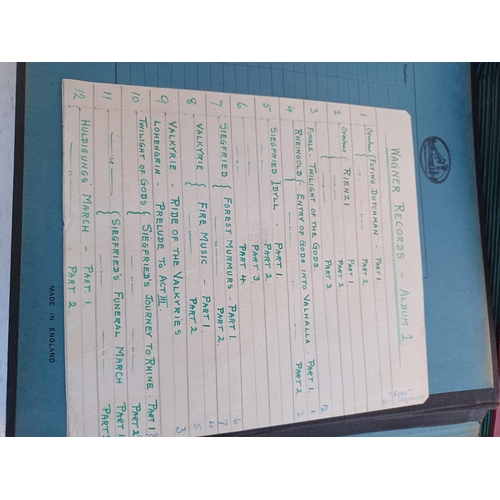 WAGNER RECORDS - ALBUM 1
1 Overture { FLYING DUTCHMAN - PART 1
" PART 2
2 Overture { RIENZI PART 1
" PART 2
PART 3
3 FINALE, TWILIGHT OF THE GODS 12
4 RHEINGOLD { ENTRY OF GODS INTO VALHALLA PART 1. 1
" PART 2 2
5 SIEGFRIED IDYLL. PART 1.
PART 2.
6 PART 3
PART 4.
7 SIEGFRIED { FOREST MURMURS. PART 1. 6
" PART 2. 7
8 VALKYRIE { FIRE MUSIC - PART 1 4
" PART 2 5
9 VALKYRIE - RIDE OF THE VALKYRIES 3
LOHENGRIN - PRELUDE TO ACT III.
10 TWILIGHT OF GODS { SIEGFRIED'S JOURNEY TO RHINE. PART 1
" PART 2
11 " { SIEGFRIED'S FUNERAL MARCH PART 1
" PART
12 HULDIGUNGS MARCH - PART 1.
" PART 2
MADE IN ENGLAND